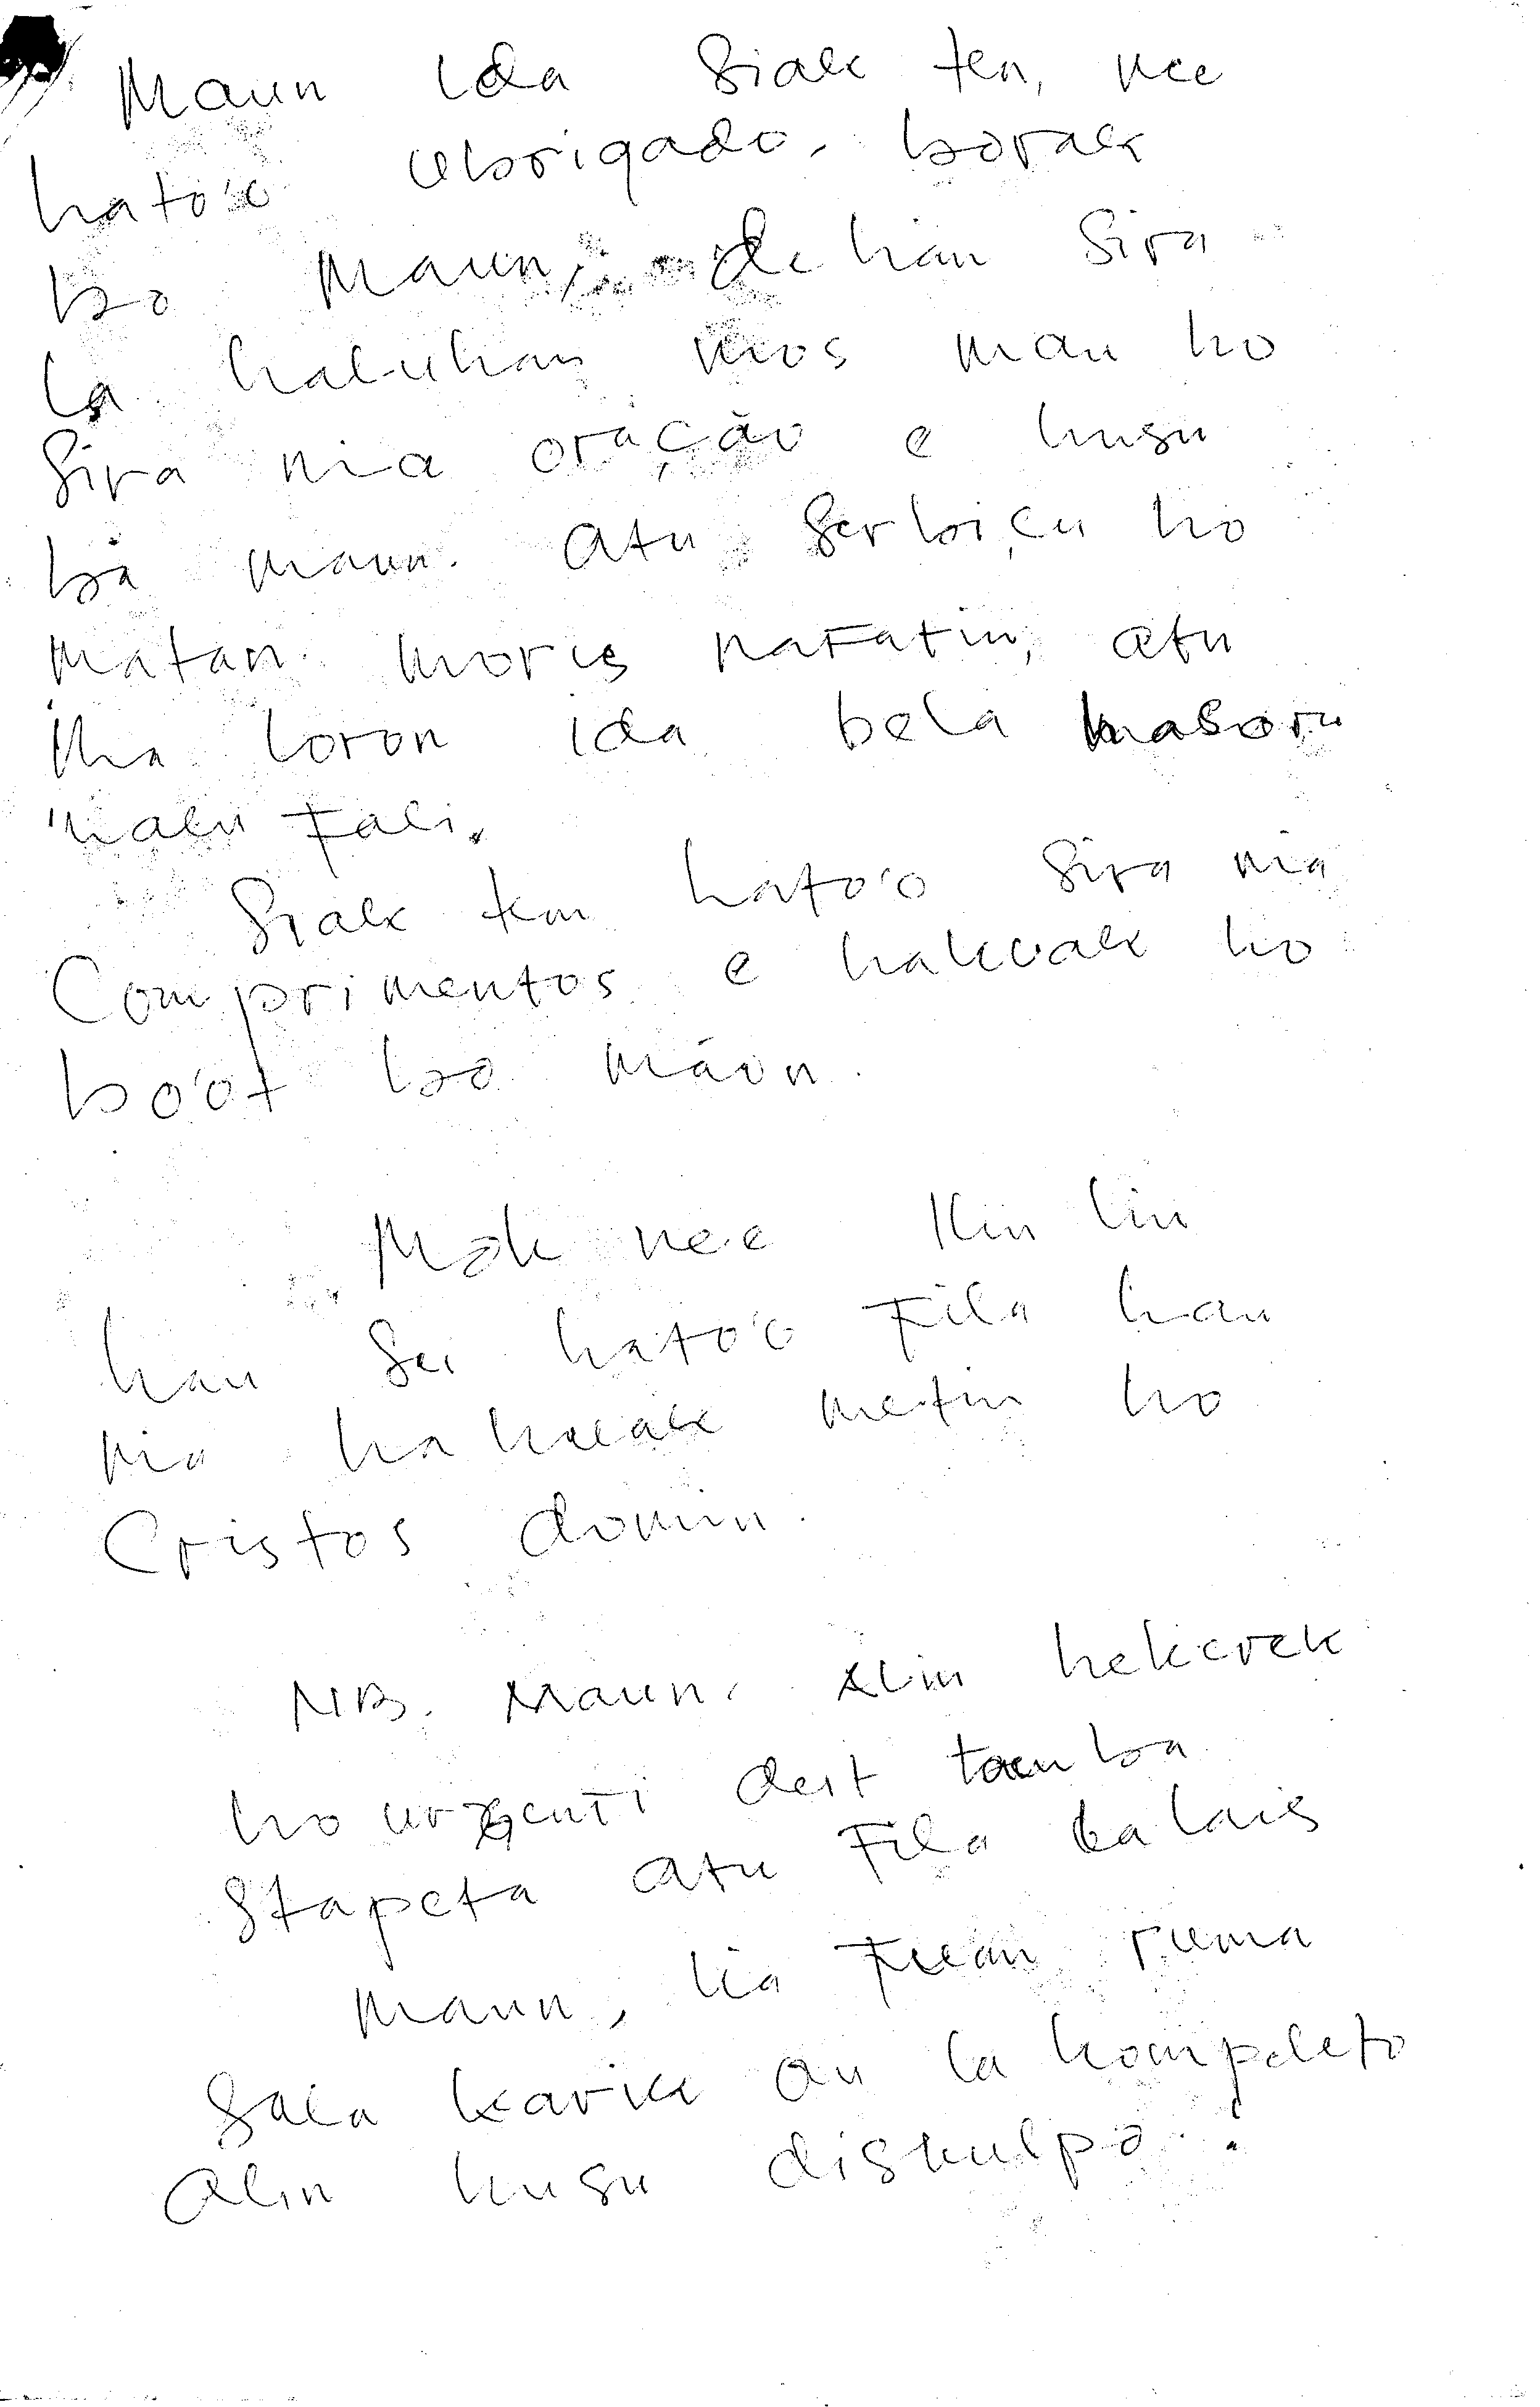 Maun Ida Siak ten, nee
hato'o obrigado, borak
bo Maun, dehan sira
la haluhan mos mau ho
Sira nia oração e husu
ba maun. atu serbiçu ho
matan moris nafatin, atu
iha loron ida bela hasoru
malu fali.
Siak ten hato'o sira nia
Comprimentos e hakuak ho
bo'ot bo máun.
Mak nee Kiu liu
hau sei hato'o fila hau
nia hakuak metin ho
Cristos domin.
NB. Maun, alin hekerek
ho urgenti deit tamba
Stapeta atu fila lalais
maun, lia fuan ruma
Sala karik ou la kompleto
alin husu diskulpa.!